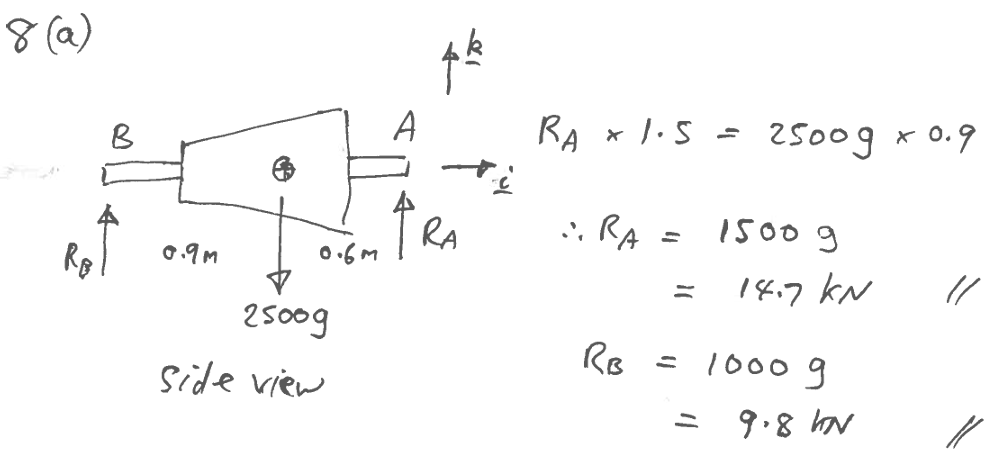 8 (a)
k
B
A
i
R_B
0.9m
0.6m
R_A
2500g
side view
R_A × 1.5 = 2500g × 0.9
∴ R_A = 1500 g
= 14.7 kN //
R_B = 1000 g
= 9.8 kN //